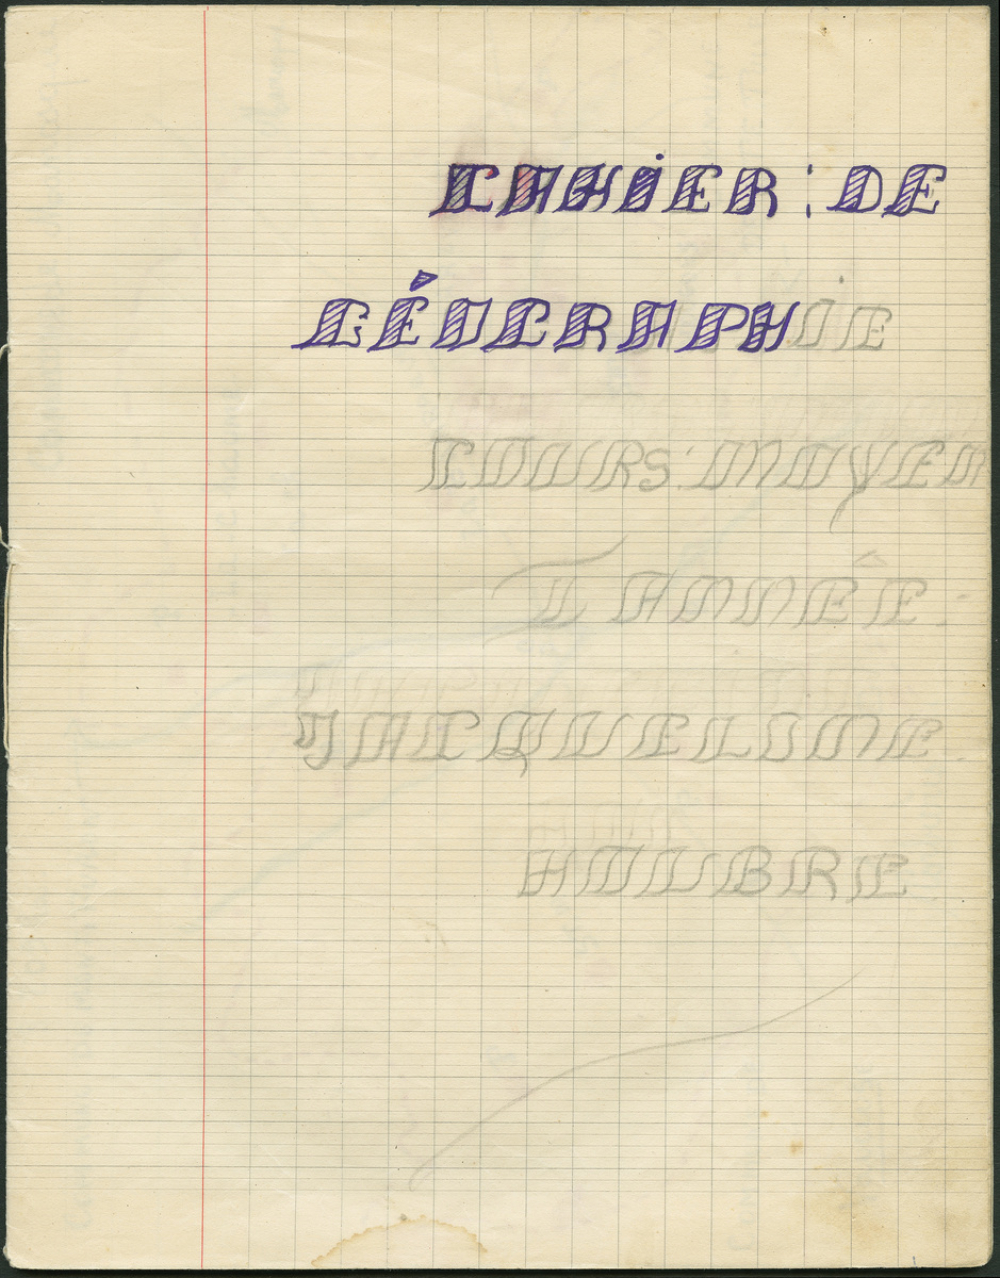 CAHIER : DE
GÉOGRAPHIE
COURS : MOYEN
I ANNÉE.
JACQUELINE.
HOUBRE